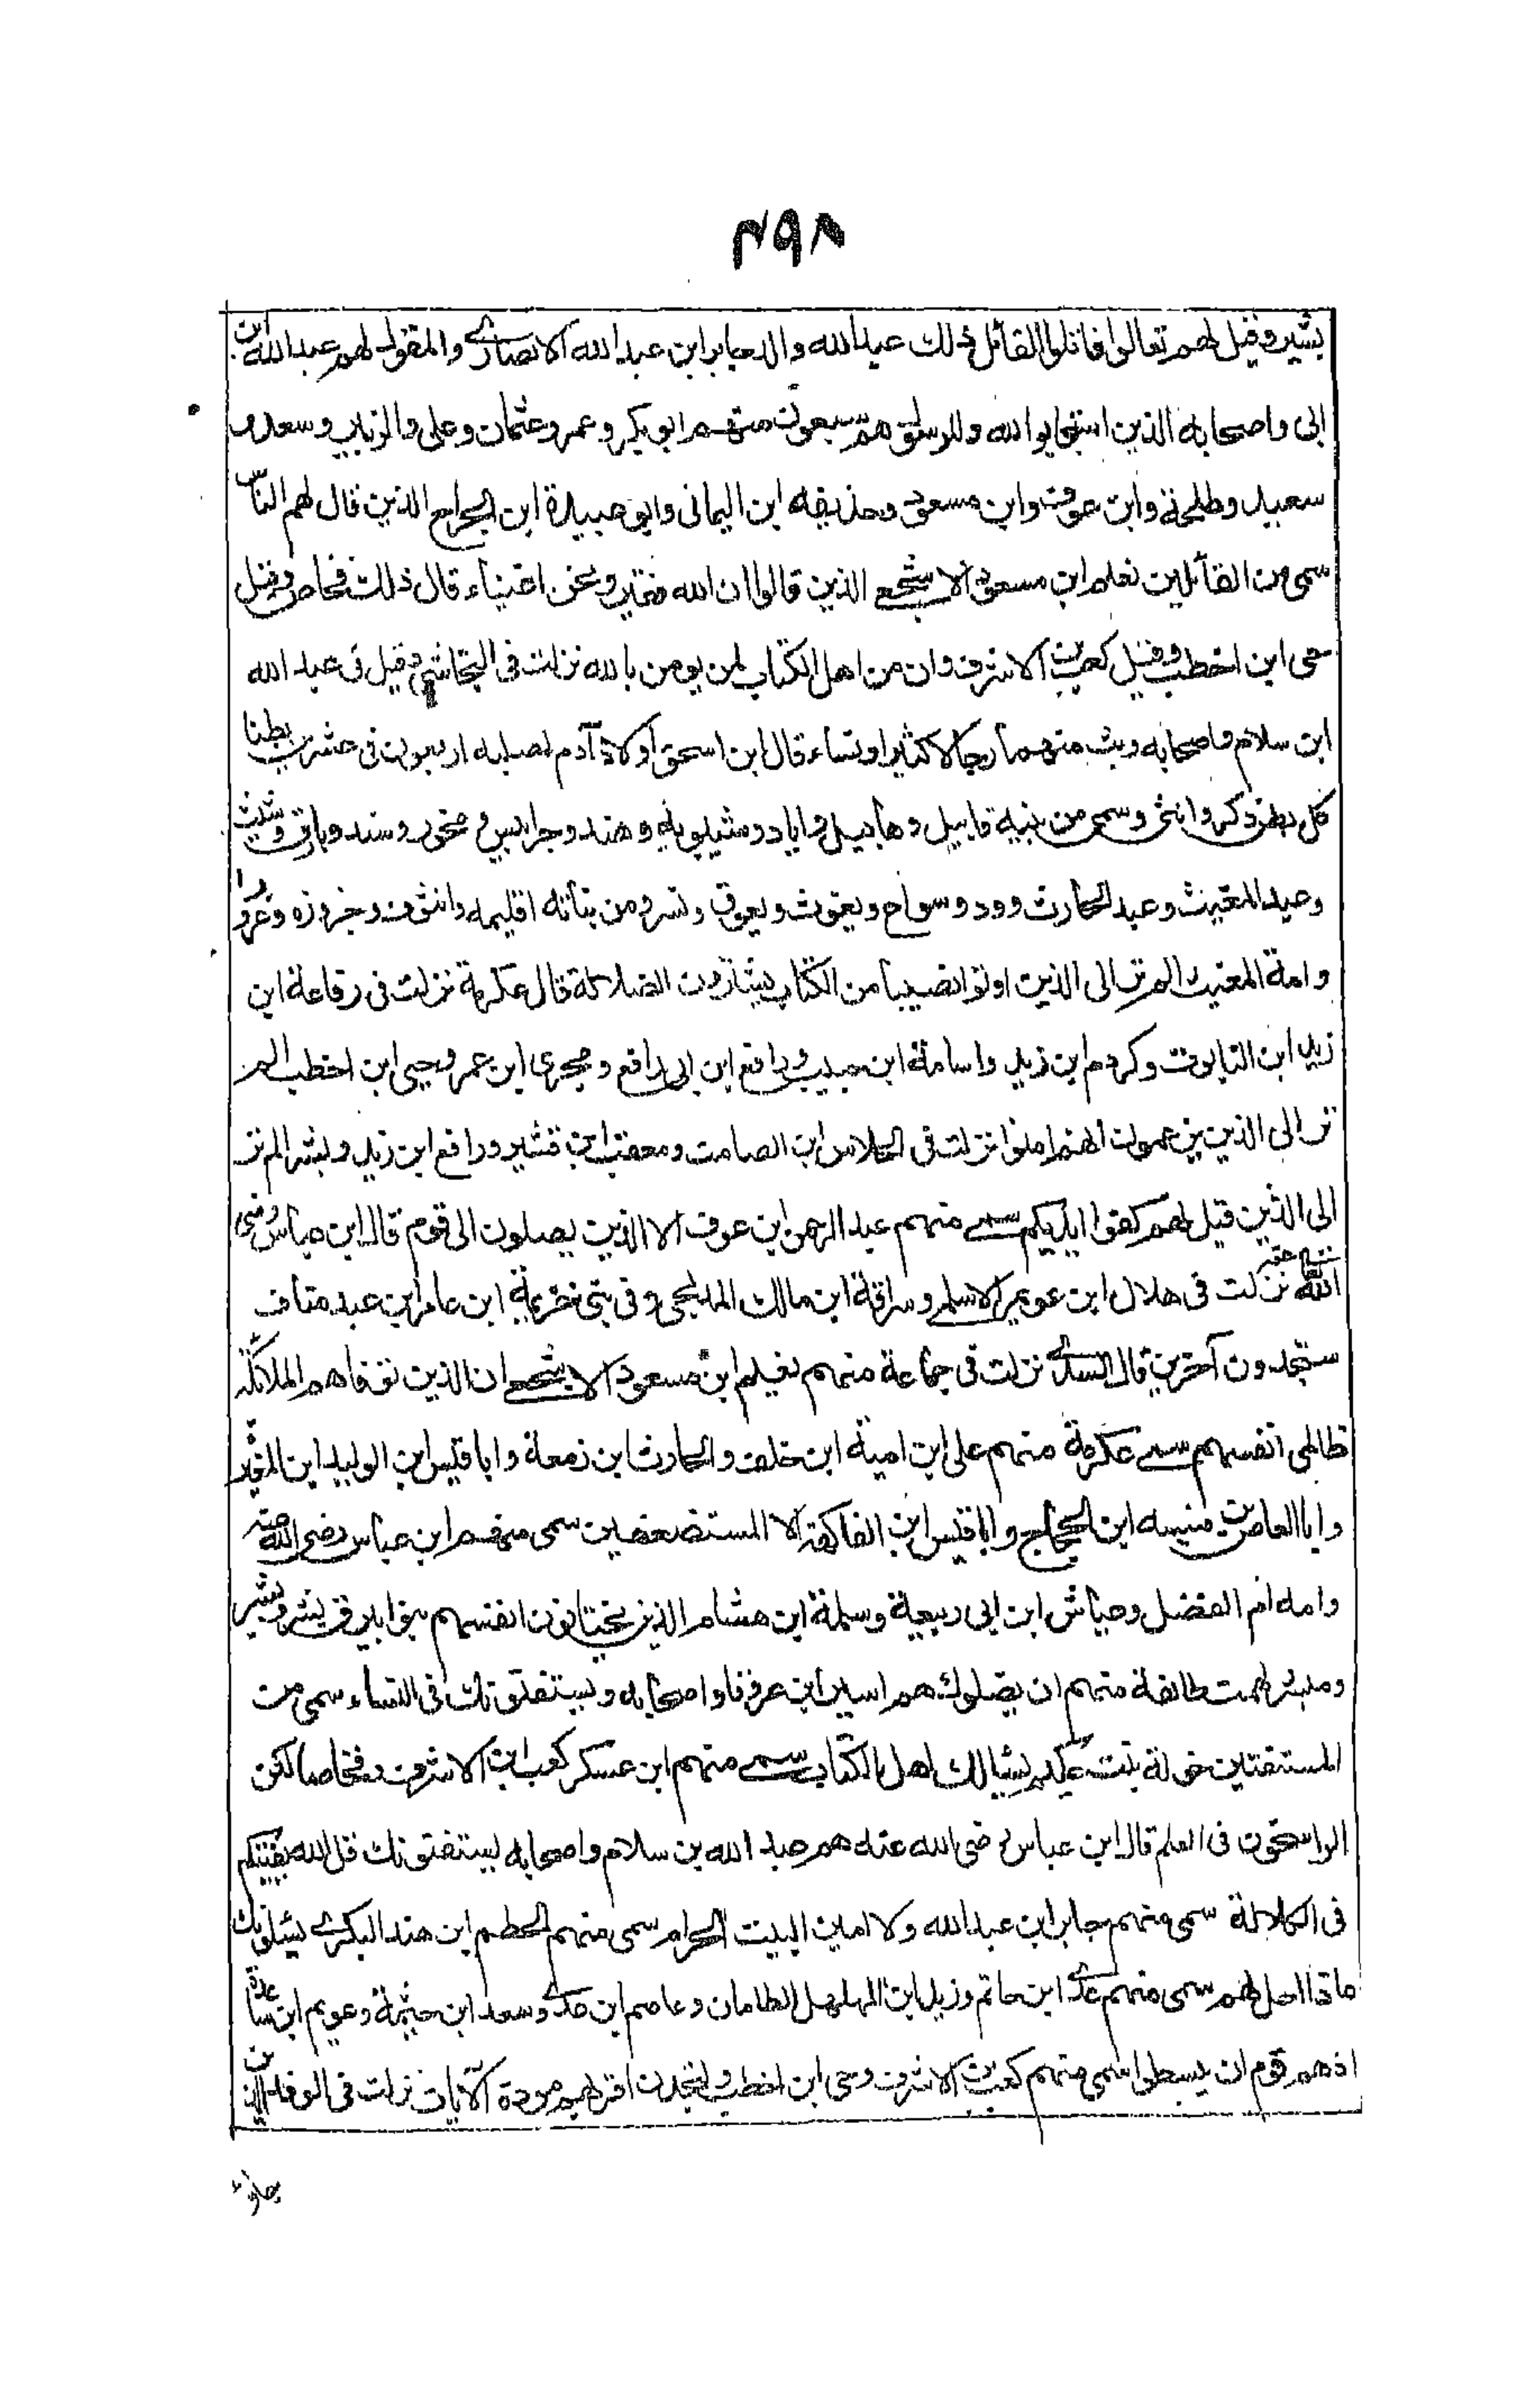 ٤٩٨
بشير وقيل لهم تعالوا قاتلوا القائل ذلك عبد الله والد جابر ابن عبد الله الانصارى والمقول لهم عبد الله ابن
ابى واصحابه الذين استجابوا لله وللرسول هم سبعون منهم ابو بكر وعمر وعثمان وعلى والزبير وسعد و
سعيد وطلحة وابن عوف وابن مسعود وحذيفه ابن اليمانى وابو عبيدة ابن الجراح الذين قال لهم الناس
سمى من القائلين نعيم ابن مسعود الاشجعى الذين قالوا ان الله فقير ونحن اغنياء قال ذلك فنحاص وقيل
حى ابن اخطب وقيل كعب بن الاشرف وان من اهل الكتاب لمن يومن بالله نزلت فى النجاشى وقيل فى عبد الله
ابن سلام واصحابه وبث منهما رجالا كثيرا ونساء قال ابن اسحق اولاد آدم لصلبه اربعون فى عشرين بطنا
كل بطن ذكر وانثى وسمى من بنيه قابيل وهابيل واياد وشبوبه وهند وجرابيس و فخور وسند وبارق وشيث
وعبد المغيث وعبد الحارث وود وسواع ويغوث ويعوق ونسر ومن بناته اقليمه واشوف وجزوزه وعزورا
وامة المغيث الم تر الى الذين اوتوا نصيبا من الكتاب يشترون الضلالة قال عكرمة نزلت فى رفاعة ابن
زيد ابن التابوت وكردم ابن زيد واسامة ابن حبيب ورافع ابن ابى رافع وبحرى ابن عمرو وحيى ابن اخطب الم
تر الى الذين يزعمون انهم امنوا نزلت فى الجلاس ابن الصامت ومعتب ابن قشير ورافع ابن زيد وبشر الم تر
الى الذين قيل لهم كفوا ايديكم سمى منهم عبد الرحمن ابن عوف الا الذين يصلون الى قوم قال ابن عباس رضى
الله عنه نزلت فى هلال ابن عويمر الاسلمى وسراقة ابن مالك المدلجى وفى بنى خزيمة ابن عامر ابن عبد مناف
ستجدون آخرين قال السدى نزلت فى جماعة منهم نعيم ابن مسعود الاشجعى ان الذين توفاهم الملائكة
ظالمى انفسهم سمى عكرمة منهم على ابن امية ابن خلف والحارث ابن زمعة وابا قيس ابن الوليد ابن المغيرة
وابا العاص بن منبه ابن الحجاج وابا قيس ابن الفاكهة الا المستضعفين سمى منهم ابن عباس رضى الله عنه
وامه ام الفضل وعياش ابن ابى ربيعة وسلمة ابن هشام الذين يختانون انفسهم بنو ابيرق بشر وبشير
ومبشر لهمت طائفة منهم ان يضلوك هم اسيد ابن عروة واصحابه ويستفتونك فى النساء سمى من
المستفتين خولة بنت حكيم يسألك اهل الكتاب سمى منهم ابن عسكر كعب ابن الاشرف وفنحاصا لكن
الراسخون فى العلم قال ابن عباس رضى الله عنه هم عبد الله بن سلام واصحابه يستفتونك قل الله يفتيكم
فى الكلالة سمى منهم جابر ابن عبد الله ولا امين البيت الحرام سمى منهم الحطم ابن هند البكرى يسئلونك
ماذا احل لهم سمى منهم عدى ابن حاتم وزيد ابن المهلهل الطايان وعاصم ابن عدى وسعد ابن خيثمة وعويم ابن ساعدة
اذ هم قوم ان يبسطوا سمى منهم كعب بن الاشرف وحى ابن اخطب ولتجدن اقربهم مودة الآيات نزلت فى الوفد الذين
جاؤا